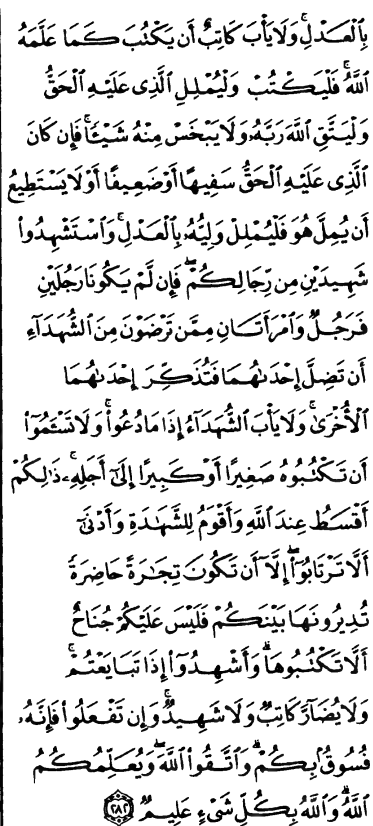 بِٱلۡعَدۡلِۚ وَلَا يَأۡبَ كَاتِبٌ أَن يَكۡتُبَ كَمَا عَلَّمَهُ
ٱللَّهُۚ فَلۡيَكۡتُبۡ وَلۡيُمۡلِلِ ٱلَّذِي عَلَيۡهِ ٱلۡحَقُّ
وَلۡيَتَّقِ ٱللَّهَ رَبَّهُۥ وَلَا يَبۡخَسۡ مِنۡهُ شَيۡـٔٗاۚ فَإِن كَانَ
ٱلَّذِي عَلَيۡهِ ٱلۡحَقُّ سَفِيهًا أَوۡ ضَعِيفًا أَوۡ لَا يَسۡتَطِيعُ
أَن يُمِلَّ هُوَ فَلۡيُمۡلِلۡ وَلِيُّهُۥ بِٱلۡعَدۡلِۚ وَٱسۡتَشۡهِدُواْ
شَهِيدَيۡنِ مِن رِّجَالِكُمۡۖ فَإِن لَّمۡ يَكُونَا رَجُلَيۡنِ
فَرَجُلٞ وَٱمۡرَأَتَانِ مِمَّن تَرۡضَوۡنَ مِنَ ٱلشُّهَدَآءِ
أَن تَضِلَّ إِحۡدَىٰهُمَا فَتُذَكِّرَ إِحۡدَىٰهُمَا
ٱلۡأُخۡرَىٰۚ وَلَا يَأۡبَ ٱلشُّهَدَآءُ إِذَا مَا دُعُواْۚ وَلَا تَسۡـَٔمُوٓاْ
أَن تَكۡتُبُوهُ صَغِيرًا أَوۡ كَبِيرًا إِلَىٰٓ أَجَلِهِۦۚ ذَٰلِكُمۡ
أَقۡسَطُ عِندَ ٱللَّهِ وَأَقۡوَمُ لِلشَّهَٰدَةِ وَأَدۡنَىٰٓ
أَلَّا تَرۡتَابُوٓاْ إِلَّآ أَن تَكُونَ تِجَٰرَةً حَاضِرَةٗ
تُدِيرُونَهَا بَيۡنَكُمۡ فَلَيۡسَ عَلَيۡكُمۡ جُنَاحٌ
أَلَّا تَكۡتُبُوهَاۗ وَأَشۡهِدُوٓاْ إِذَا تَبَايَعۡتُمۡۚ
وَلَا يُضَآرَّ كَاتِبٞ وَلَا شَهِيدٞۚ وَإِن تَفۡعَلُواْ فَإِنَّهُۥ
فُسُوقُۢ بِكُمۡۗ وَٱتَّقُواْ ٱللَّهَۖ وَيُعَلِّمُكُمُ
ٱللَّهُۗ وَٱللَّهُ بِكُلِّ شَيۡءٍ عَلِيمٞ ٢٨٢